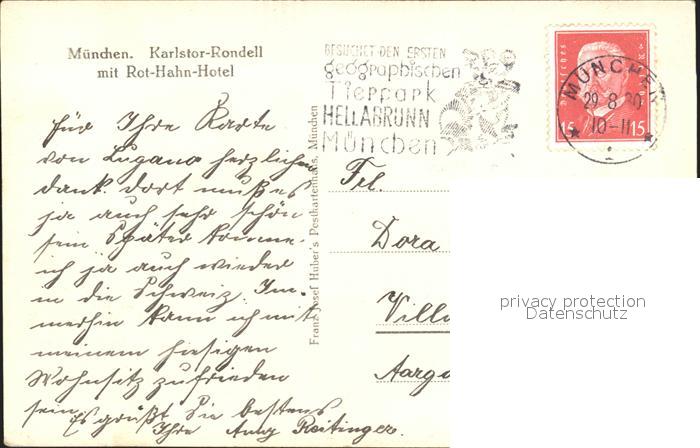 München. Karlstor-Rondell
mit Rot-Hahn-Hotel
BESUCHET DEN ERSTEN
geographischen
Tierpark
HELLABRUNN
München
MÜNCHEN
29.8.30
10-11
15 15
für Ihre Karte
von Lugano herzlichen
dank. dort muß es
ja auch sehr schön
sein. Später komme
ich ja auch wieder
in die Schweiz. Im-
merhin kann ich mit
meinem hiesigen
Wohnsitz zufrieden
sein. Es grüßt Sie bestens
Ihre Reitinger.
Franz Josef Huber's Postkartenhaus, München
Frl.
Dora
Villa
Aarga
privacy protection
Datenschutz